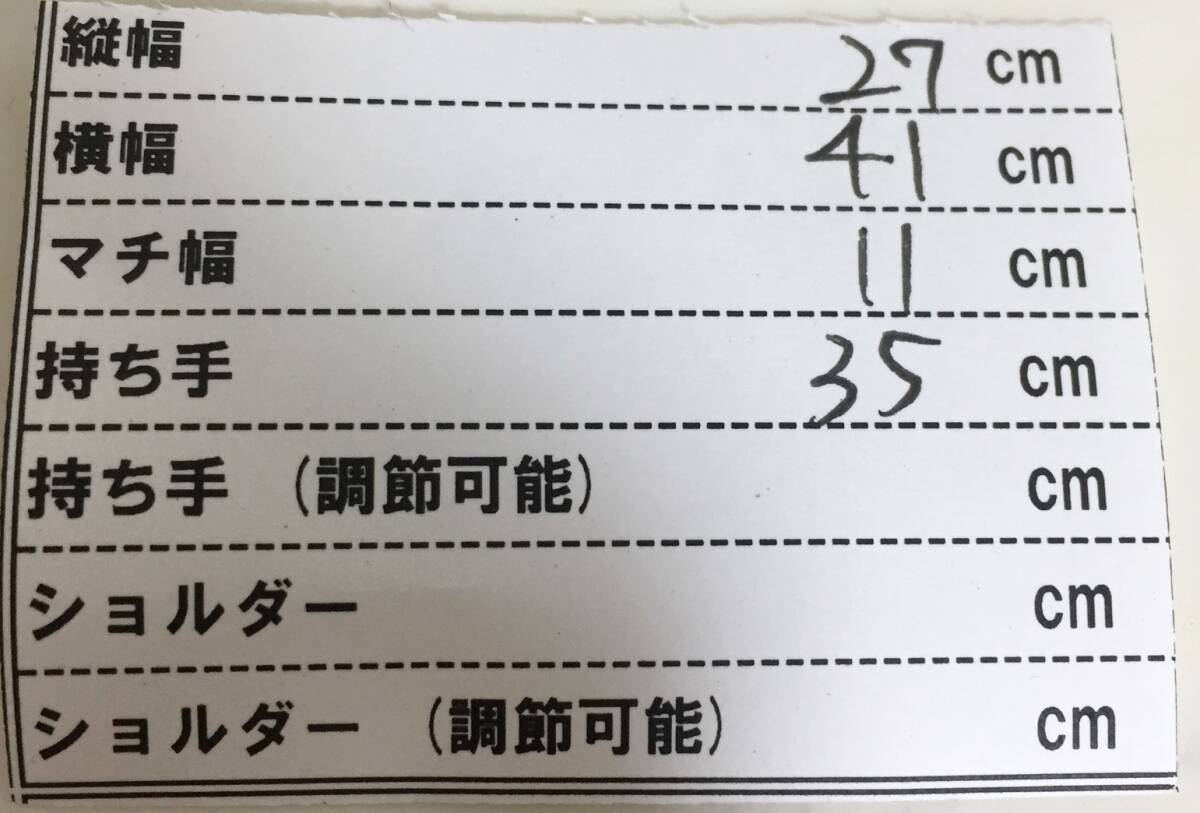 縦幅 27 cm
横幅 41 cm
マチ幅 11 cm
持ち手 35 cm
持ち手 (調節可能) cm
ショルダー cm
ショルダー (調節可能) cm